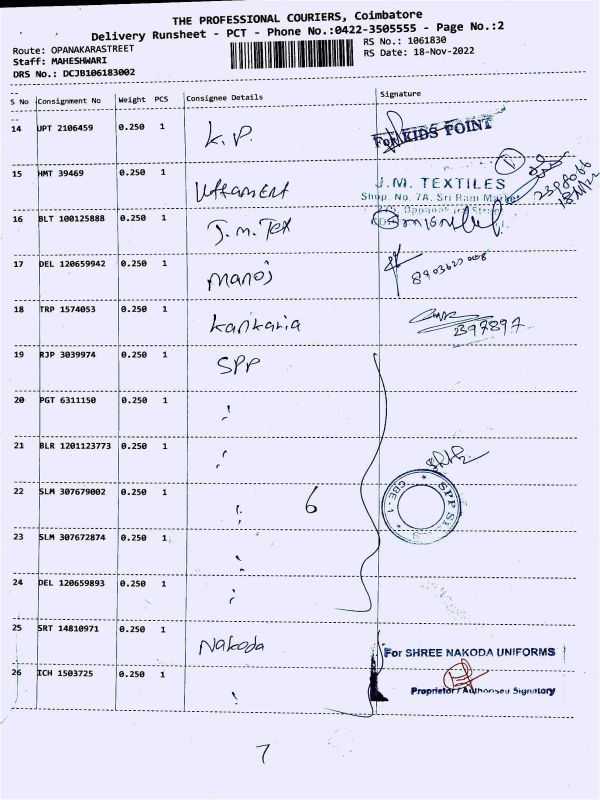 THE PROFESSIONAL COURIERS, Coimbatore
Delivery Runsheet - PCT - Phone No.:0422-3505555 - Page No.:2
Route: OPANAKARASTREET
RS No.: 1061830
Staff: MAHESHWARI
RS Date: 18-Nov-2022
DRS No.: DCJB106183002
S No Consignment No Weight PCS Consignee Details Signature
14 UPT 2106459 0.250 1 K.P. For KIDS POINT
15 HMT 39469 0.250 1
J.M. TEXTILES
Shop. No. 7A, Sri Ram Market
16 BLT 100125888 0.250 1 J.M. Tex
17 DEL 120659942 0.250 1 Manoj
18 TRP 1574053 0.250 1 Kankaria 397897
19 RJP 3039974 0.250 1 SPP
20 PGT 6311150 0.250 1 "
21 BLR 1201123773 0.250 1 "
22 SLM 307679002 0.250 1 " 6
23 SLM 307672874 0.250 1 "
24 DEL 120659893 0.250 1 "
25 SRT 14810971 0.250 1 Nakoda For SHREE NAKODA UNIFORMS
26 ICH 1503725 0.250 1 " Proprietor / Authorised Signatory
7